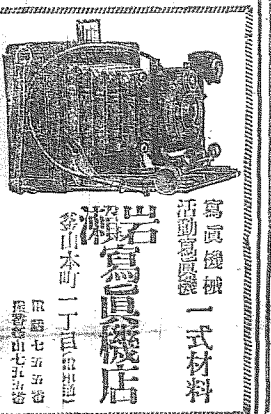 寫眞機械
活動寫眞機
一式材料
岩瀨寫眞機店
釜山本町一丁目
電話七五五番
振替釜山七五五番